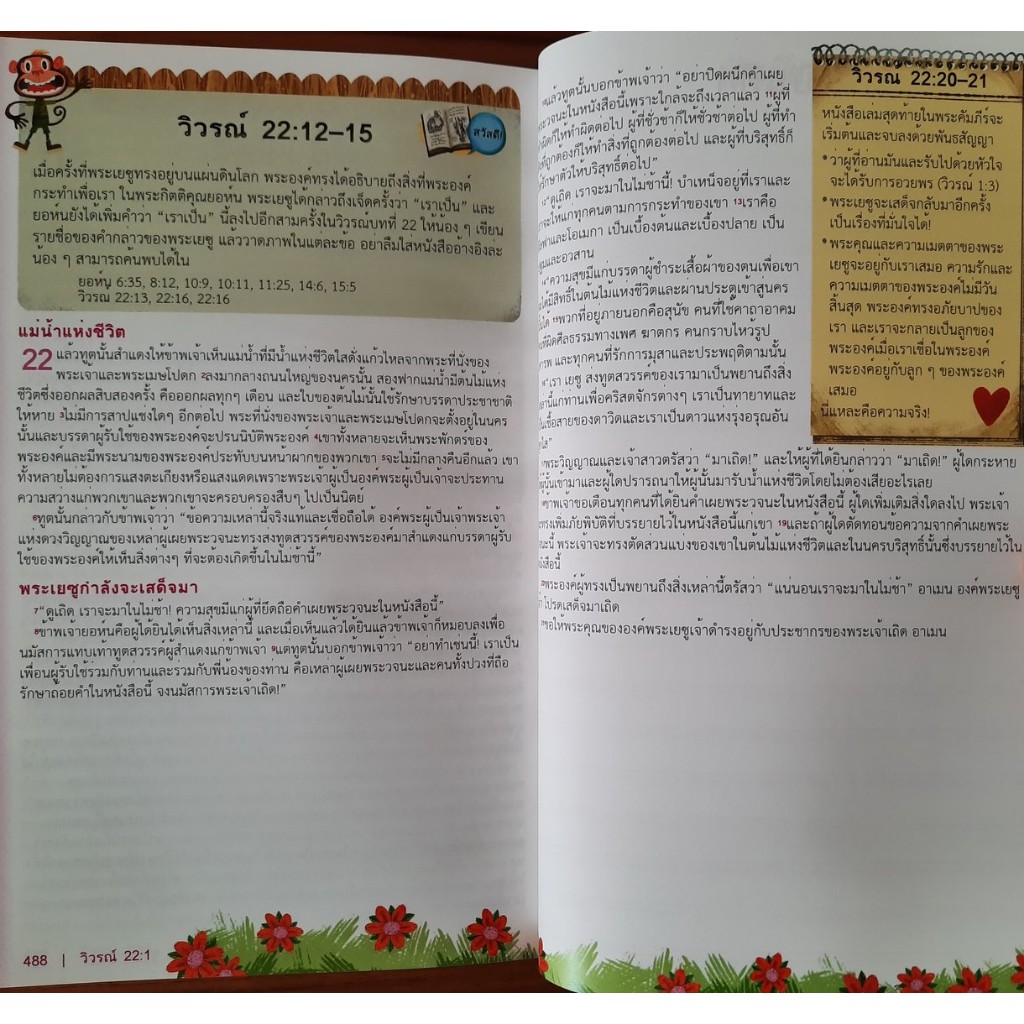 วิวรณ์ 22:12–15
สวัสดี!
เมื่อครั้งที่พระเยซูทรงอยู่บนแผ่นดินโลก พระองค์ทรงได้อธิบายถึงสิ่งที่พระองค์
กระทำเพื่อเรา ในพระกิตติคุณยอห์น พระเยซูได้กล่าวถึงเจ็ดครั้งว่า “เราเป็น” และ
ยอห์นยังได้เพิ่มคำว่า “เราเป็น” นี้ลงไปอีกสามครั้งในวิวรณ์บทที่ 22 ให้น้อง ๆ เขียน
รายชื่อของคำกล่าวของพระเยซู แล้ววาดภาพในแต่ละข้อ อย่าลืมใส่หนังสืออ้างอิงล่ะ
น้อง ๆ สามารถค้นพบได้ใน
ยอห์น 6:35, 8:12, 10:9, 10:11, 11:25, 14:6, 15:5
วิวรณ 22:13, 22:16, 22:16
แม่น้ำแห่งชีวิต
22 แล้วทูตนั้นสำแดงให้ข้าพเจ้าเห็นแม่น้ำที่มีน้ำแห่งชีวิตใสดั่งแก้วไหลจากพระที่นั่งของ
พระเจ้าและพระเมษโปดก 2ลงมากลางถนนใหญ่ของนครนั้น สองฟากแม่น้ำมีต้นไม้แห่ง
ชีวิตซึ่งออกผลสิบสองครั้ง คือออกผลทุกๆ เดือน และใบของต้นไม้นั้นใช้รักษาบรรดาประชาชาติ
ให้หาย 3ไม่มีการสาปแช่งใดๆ อีกต่อไป พระที่นั่งของพระเจ้าและพระเมษโปดกจะตั้งอยู่ในนคร
นั้นและบรรดาผู้รับใช้ของพระองค์จะปรนนิบัติพระองค์ 4เขาทั้งหลายจะเห็นพระพักตร์ของ
พระองค์และมีพระนามของพระองค์ประทับบนหน้าผากของพวกเขา 5จะไม่มีกลางคืนอีกแล้ว เขา
ทั้งหลายไม่ต้องการแสงตะเกียงหรือแสงแดดเพราะพระเจ้าผู้เป็นองค์พระผู้เป็นเจ้าจะประทาน
ความสว่างแก่พวกเขาและพวกเขาจะครอบครองสืบๆ ไปเป็นนิตย์
6ทูตนั้นกล่าวกับข้าพเจ้าว่า “ข้อความเหล่านี้จริงแท้และเชื่อถือได้ องค์พระผู้เป็นเจ้าพระเจ้า
แห่งดวงวิญญาณของเหล่าผู้เผยพระวจนะทรงส่งทูตสวรรค์ของพระองค์มาสำแดงแก่บรรดาผู้รับ
ใช้ของพระองค์ให้เห็นสิ่งต่างๆ ที่จะต้องเกิดขึ้นในไม่ช้านี้”
พระเยซูกำลังจะเสด็จมา
7“ดูเถิด เราจะมาในไม่ช้า! ความสุขมีแก่ผู้ที่ยึดถือคำเผยพระวจนะในหนังสือนี้”
8ข้าพเจ้ายอห์นคือผู้ได้ยินได้เห็นสิ่งเหล่านี้ และเมื่อเห็นแล้วได้ยินแล้วข้าพเจ้าก็หมอบลงเพื่อ
นมัสการแทบเท้าทูตสวรรค์ผู้สำแดงแก่ข้าพเจ้า 9แต่ทูตนั้นบอกข้าพเจ้าว่า “อย่าทำเช่นนี้! เราเป็น
เพื่อนผู้รับใช้ร่วมกับท่านและร่วมกับพี่น้องของท่าน คือเหล่าผู้เผยพระวจนะและคนทั้งปวงที่ถือ
รักษาถ้อยคำในหนังสือนี้ จงนมัสการพระเจ้าเถิด!”
488 | วิวรณ์ 22:1
แล้วทูตนั้นบอกข้าพเจ้าว่า “อย่าปิดผนึกคำเผย
พระวจนะในหนังสือนี้เพราะใกล้จะถึงเวลาแล้ว 11ผู้ที่
ผิดก็ให้ทำผิดต่อไป ผู้ที่ชั่วช้าก็ให้ชั่วช้าต่อไป ผู้ที่ทำ
ที่ถูกต้องก็ให้ทำสิ่งที่ถูกต้องต่อไป และผู้ที่บริสุทธิ์ก็
รักษาตัวให้บริสุทธิ์ต่อไป”
12“ดูเถิด เราจะมาในไม่ช้านี้! บำเหน็จอยู่ที่เราและ
จะให้แก่ทุกคนตามการกระทำของเขา 13เราคือ
และโอเมกา เป็นเบื้องต้นและเบื้องปลาย เป็น
และอวสาน
14“ความสุขมีแก่บรรดาผู้ชำระเสื้อผ้าของตนเพื่อเขา
ได้มีสิทธิ์ในต้นไม้แห่งชีวิตและผ่านประตูเข้าสู่นคร
ได้ 15พวกที่อยู่ภายนอกคือสุนัข คนที่ใช้คาถาอาคม
ผิดศีลธรรมทางเพศ ฆาตกร คนกราบไหว้รูป
และทุกคนที่รักการมุสาและประพฤติตามนั้น
16“เรา เยซู ส่งทูตสวรรค์ของเรามาเป็นพยานถึงสิ่ง
แก่ท่านเพื่อคริสตจักรต่างๆ เราเป็นทายาทและ
เชื้อสายของดาวิดและเราเป็นดาวแห่งรุ่งอรุณอัน
พระวิญญาณและเจ้าสาวตรัสว่า “มาเถิด!” และให้ผู้ที่ได้ยินกล่าวว่า “มาเถิด!” ผู้ใดกระหาย
นั้นเข้ามาและผู้ใดปรารถนาให้ผู้นั้นมารับน้ำแห่งชีวิตโดยไม่ต้องเสียอะไรเลย
ข้าพเจ้าขอเตือนทุกคนที่ได้ยินคำเผยพระวจนะในหนังสือนี้ ผู้ใดเพิ่มเติมสิ่งใดลงไป พระเจ้า
ทรงเพิ่มภัยพิบัติที่บรรยายไว้ในหนังสือนี้แก่เขา 19และถ้าผู้ใดตัดทอนข้อความจากคำเผยพระ
นี้ พระเจ้าจะทรงตัดส่วนแบ่งของเขาในต้นไม้แห่งชีวิตและในนครบริสุทธิ์นั้นซึ่งบรรยายไว้ใน
สือนี้
พระองค์ผู้ทรงเป็นพยานถึงสิ่งเหล่านี้ตรัสว่า “แน่นอนเราจะมาในไม่ช้า” อาเมน องค์พระเยซู
โปรดเสด็จมาเถิด
ขอให้พระคุณขององค์พระเยซูเจ้าดำรงอยู่กับประชากรของพระเจ้าเถิด อาเมน
วิวรณ 22:20–21
หนังสือเล่มสุดท้ายในพระคัมภีร์จะ
เริ่มต้นและจบลงด้วยพันธสัญญา
•ว่าผู้ที่อ่านมันและรับไปด้วยหัวใจ
จะได้รับการอวยพร (วิวรณ์ 1:3)
•พระเยซูจะเสด็จกลับมาอีกครั้ง
เป็นเรื่องที่มั่นใจได้!
•พระคุณและความเมตตาของพระ
เยซูจะอยู่กับเราเสมอ ความรักและ
ความเมตตาของพระองค์ไม่มีวัน
สิ้นสุด พระองค์ทรงอภัยบาปของ
เรา และเราจะกลายเป็นลูกของ
พระองค์เมื่อเราเชื่อในพระองค์
พระองค์อยู่กับลูก ๆ ของพระองค์
เสมอ
นี่แหละคือความจริง!